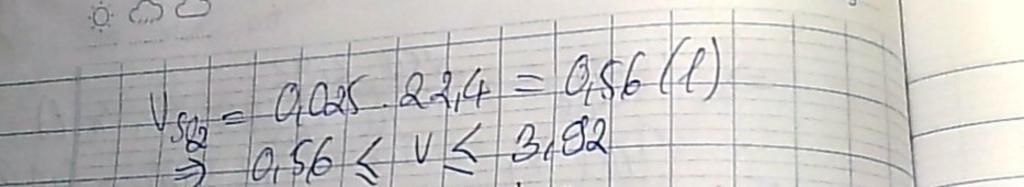 V_SO2 = 0,025 . 22,4 = 0,56 (l)
⇒ 0,56 ≤ V ≤ 3,92